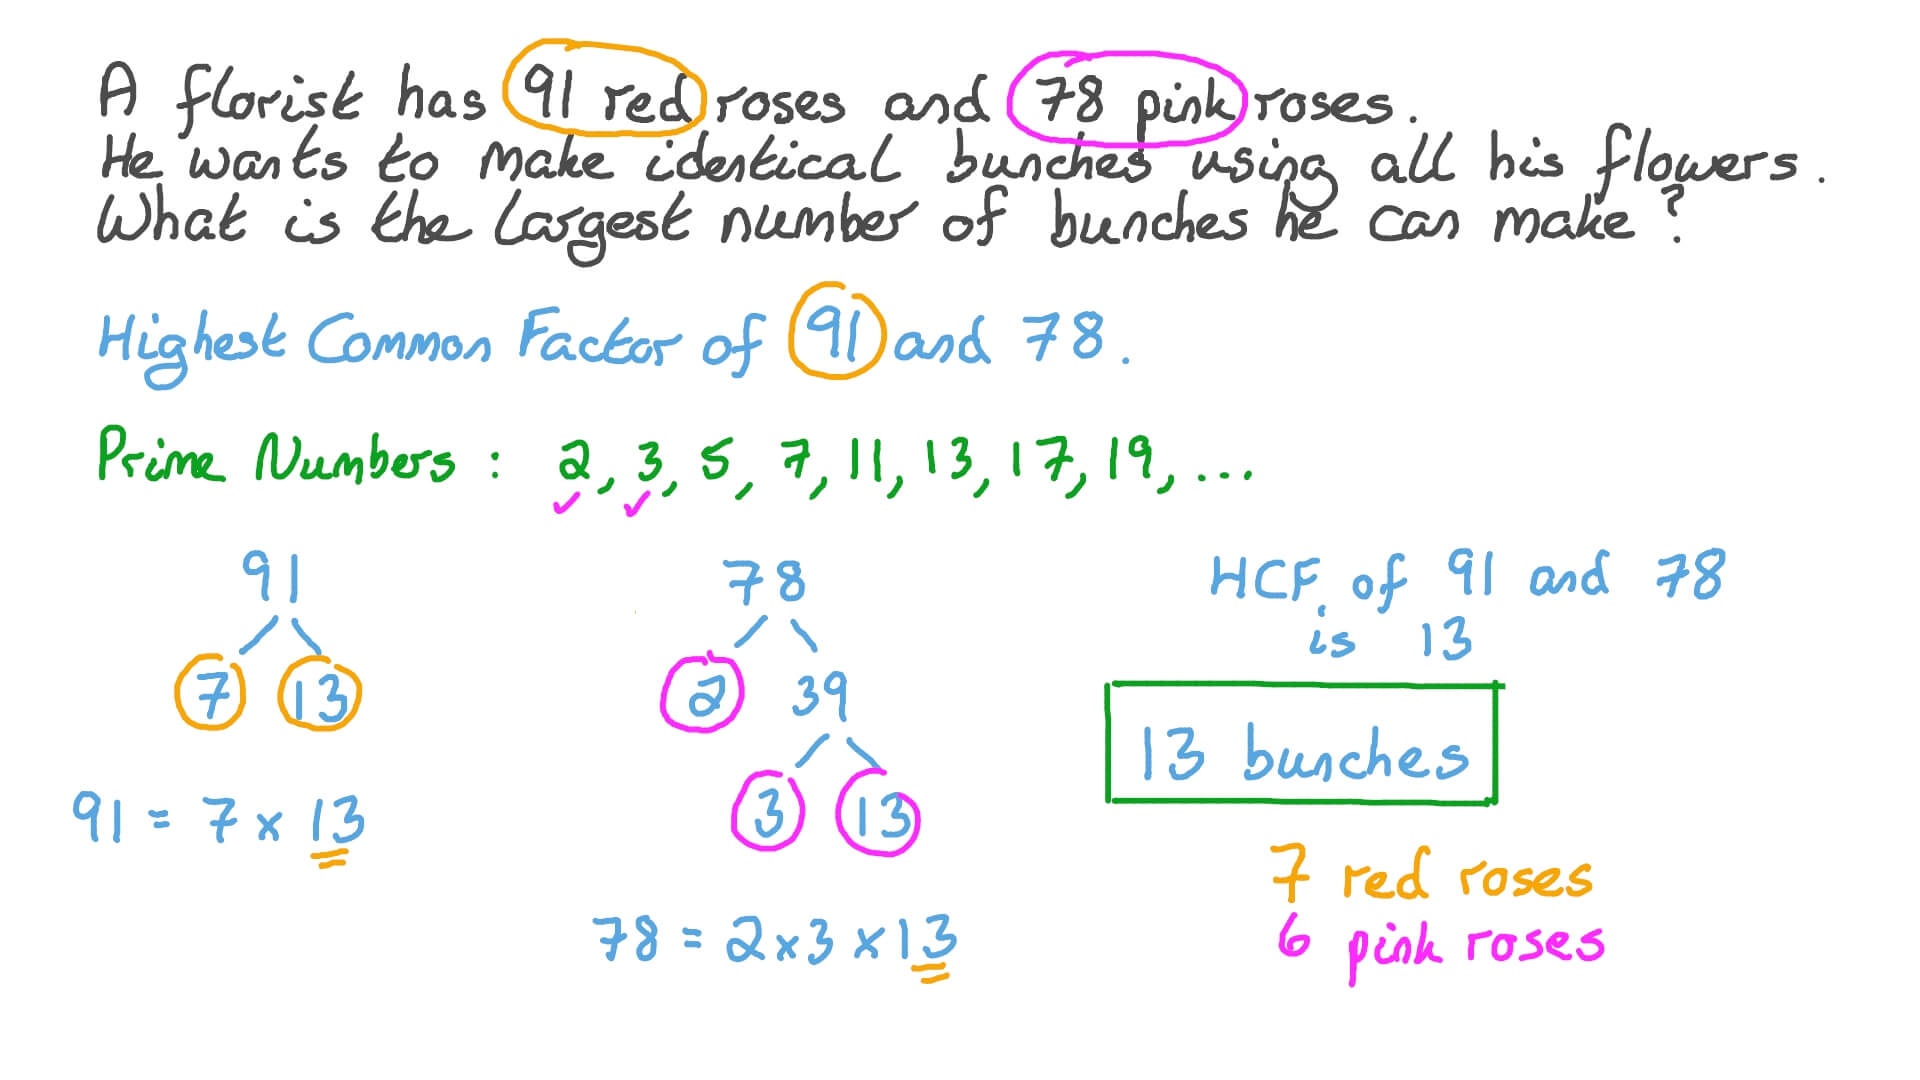 A florist has 91 red roses and 78 pink roses.
He wants to make identical bunches using all his flowers.
What is the largest number of bunches he can make?
Highest Common Factor of 91 and 78.
Prime Numbers: 2, 3, 5, 7, 11, 13, 17, 19, ...
91
7 13
91 = 7 x 13
78
2 39
3 13
78 = 2 x 3 x 13
HCF of 91 and 78
is 13
13 bunches
7 red roses
6 pink roses